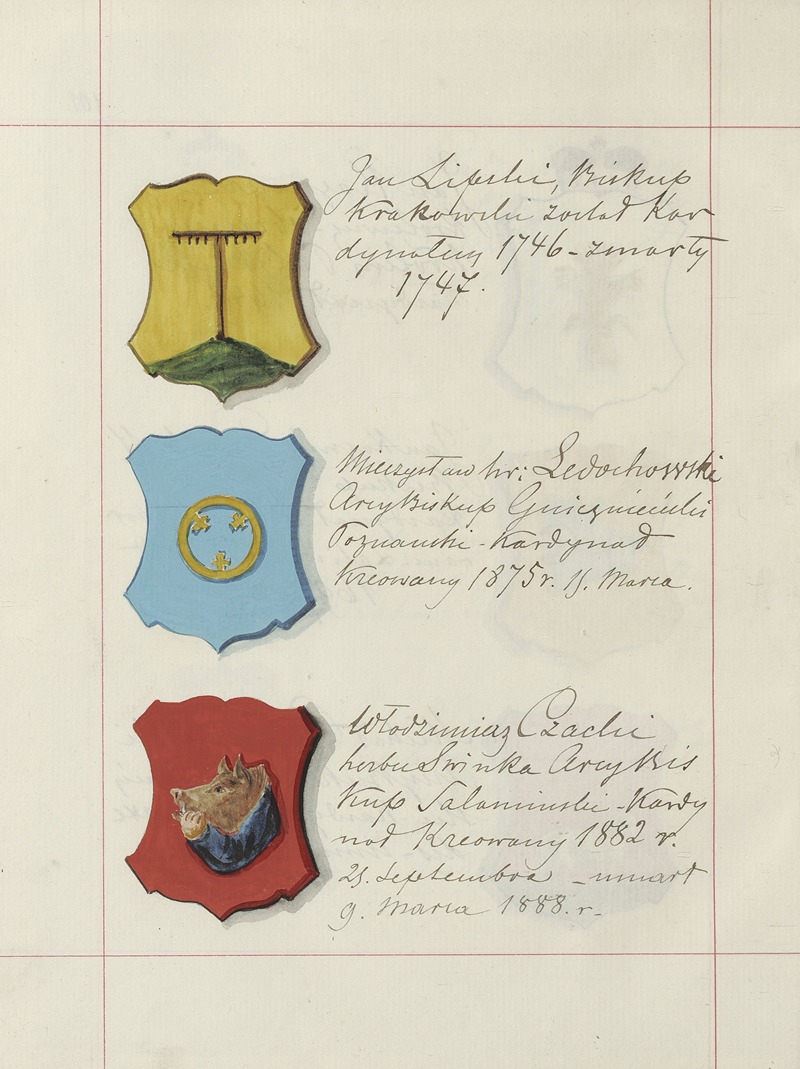 Jan Lipski, Biskup
Krakowski został Kar
dynałem 1746 - zmarły
1747.
Mieczysław hr: Ledochowski
ArcyBiskup Gnieznieński
Poznański - Kardynał
Kreowany 1875 r. 15. Marca.
Włodzimierz Czacki
herbu Swinka ArcyBis
kup Salaminski - Kardy
nał Kreowany 1882 r.
25. Septembra - umarł
9. Marca 1888. r -